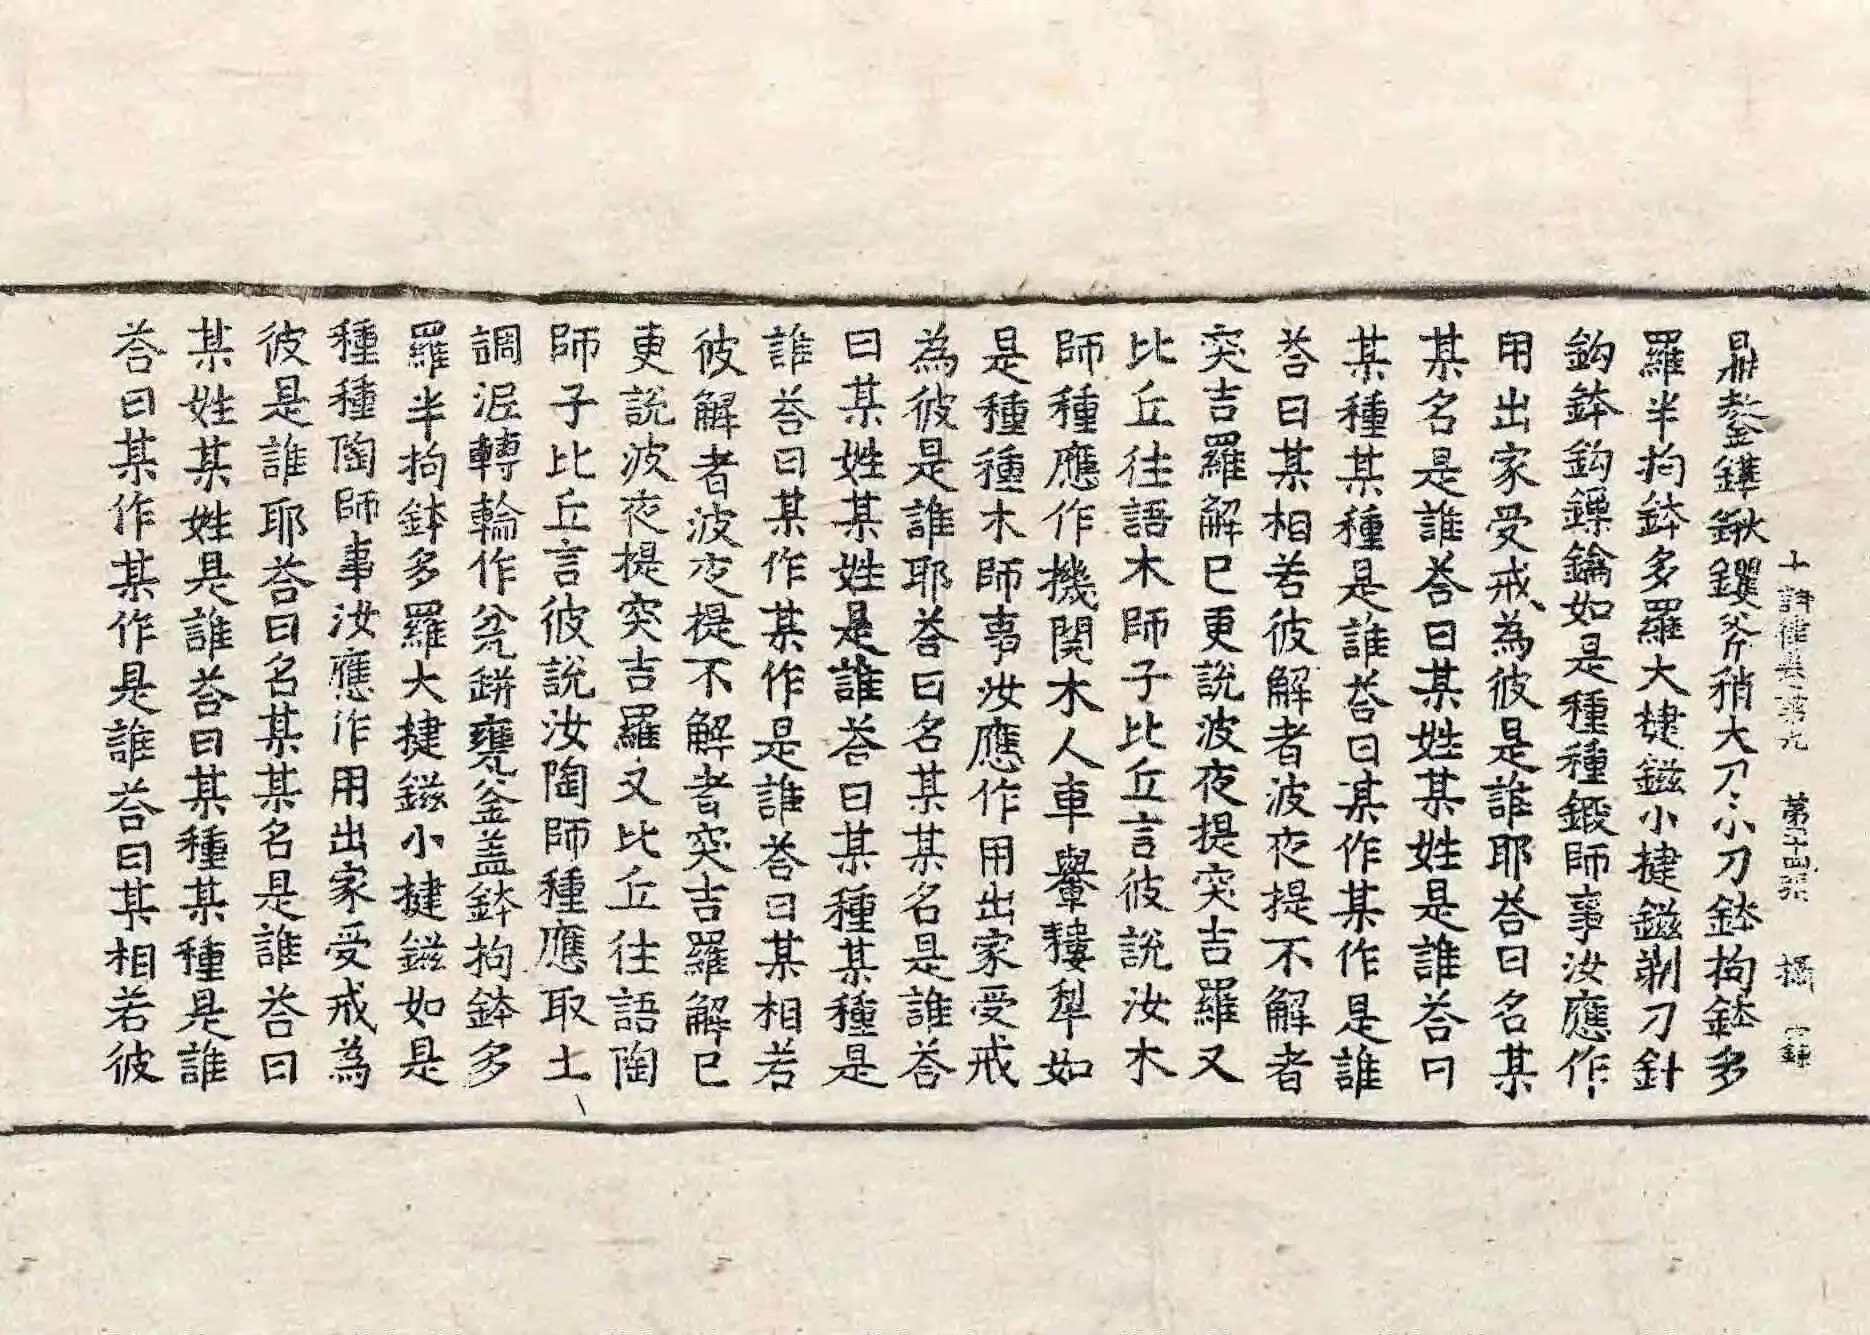 十誦律卷第九 第二十四張 攝 字號
鼎鏊鏵鍬钁斧矟大刀小刀鉢拘鉢多
羅半拘鉢多羅大揵鎡小揵鎡剃刀針
鈎鉢鈎鏁鑰如是種種鍛師事汝應作
用出家受戒為彼是誰耶荅曰名某
某名是誰荅曰某姓某姓是誰荅曰
某種某種是誰荅曰某作某作是誰
荅曰某相若彼解者波夜提不解者
突吉羅解已更說波夜提突吉羅又
比丘往語木師子比丘言彼說汝木
師種應作機関木人車轝耬犁如
是種種木師事汝應作用出家受戒
為彼是誰耶荅曰名某某名是誰荅
曰某姓某姓是誰荅曰某種某種是
誰荅曰某作某作是誰荅曰某相若
彼解者波夜提不解者突吉羅解已
更說波夜提突吉羅又比丘往語陶
師子比丘言彼說汝陶師種應取土
調泥轉輪作瓫瓶甕釜盖鉢拘鉢多
羅半拘鉢多羅大揵鎡小揵鎡如是
種種陶師事汝應作用出家受戒為
彼是誰耶荅曰名某某名是誰荅曰
某姓某姓是誰荅曰某種某種是誰
荅曰某作某作是誰荅曰某相若彼